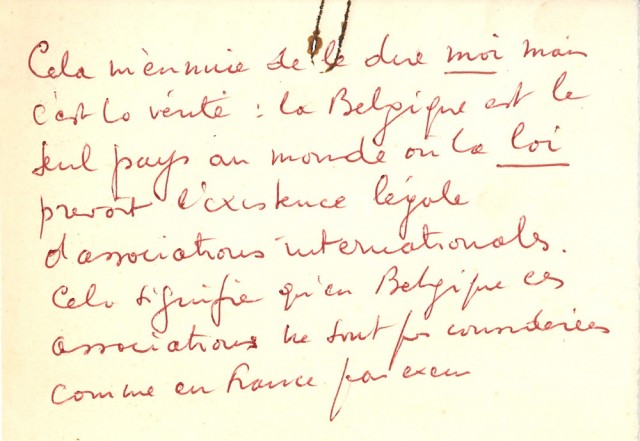 Cela m'ennuie de le dire moi mais
c'est la vérité : la Belgique est le
seul pays au monde où la loi
prévoit l'existence légale
d'associations internationales.
Cela signifie qu'en Belgique ces
associations ne sont pas considérées
comme en France par exem